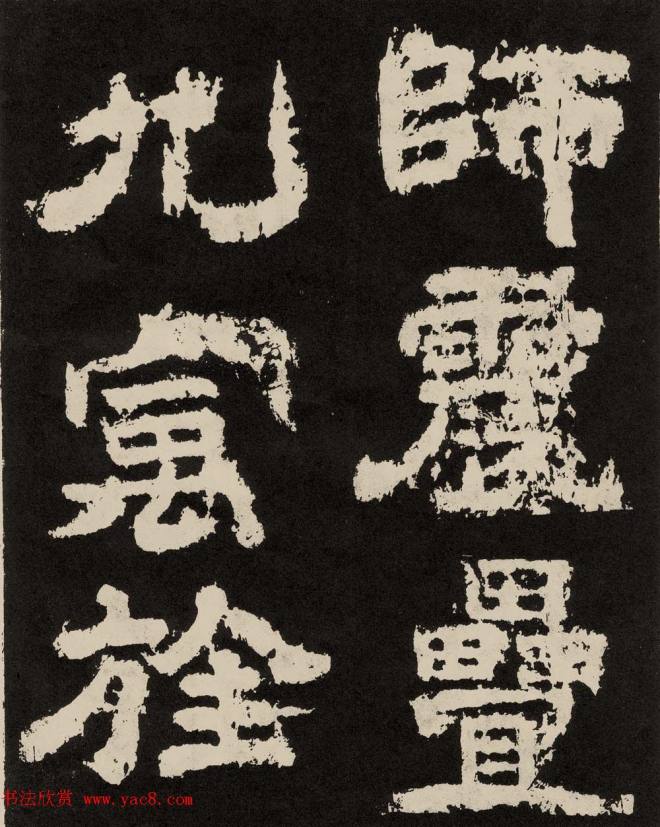 師震疊
九寓
书法欣赏 www.yac8.com